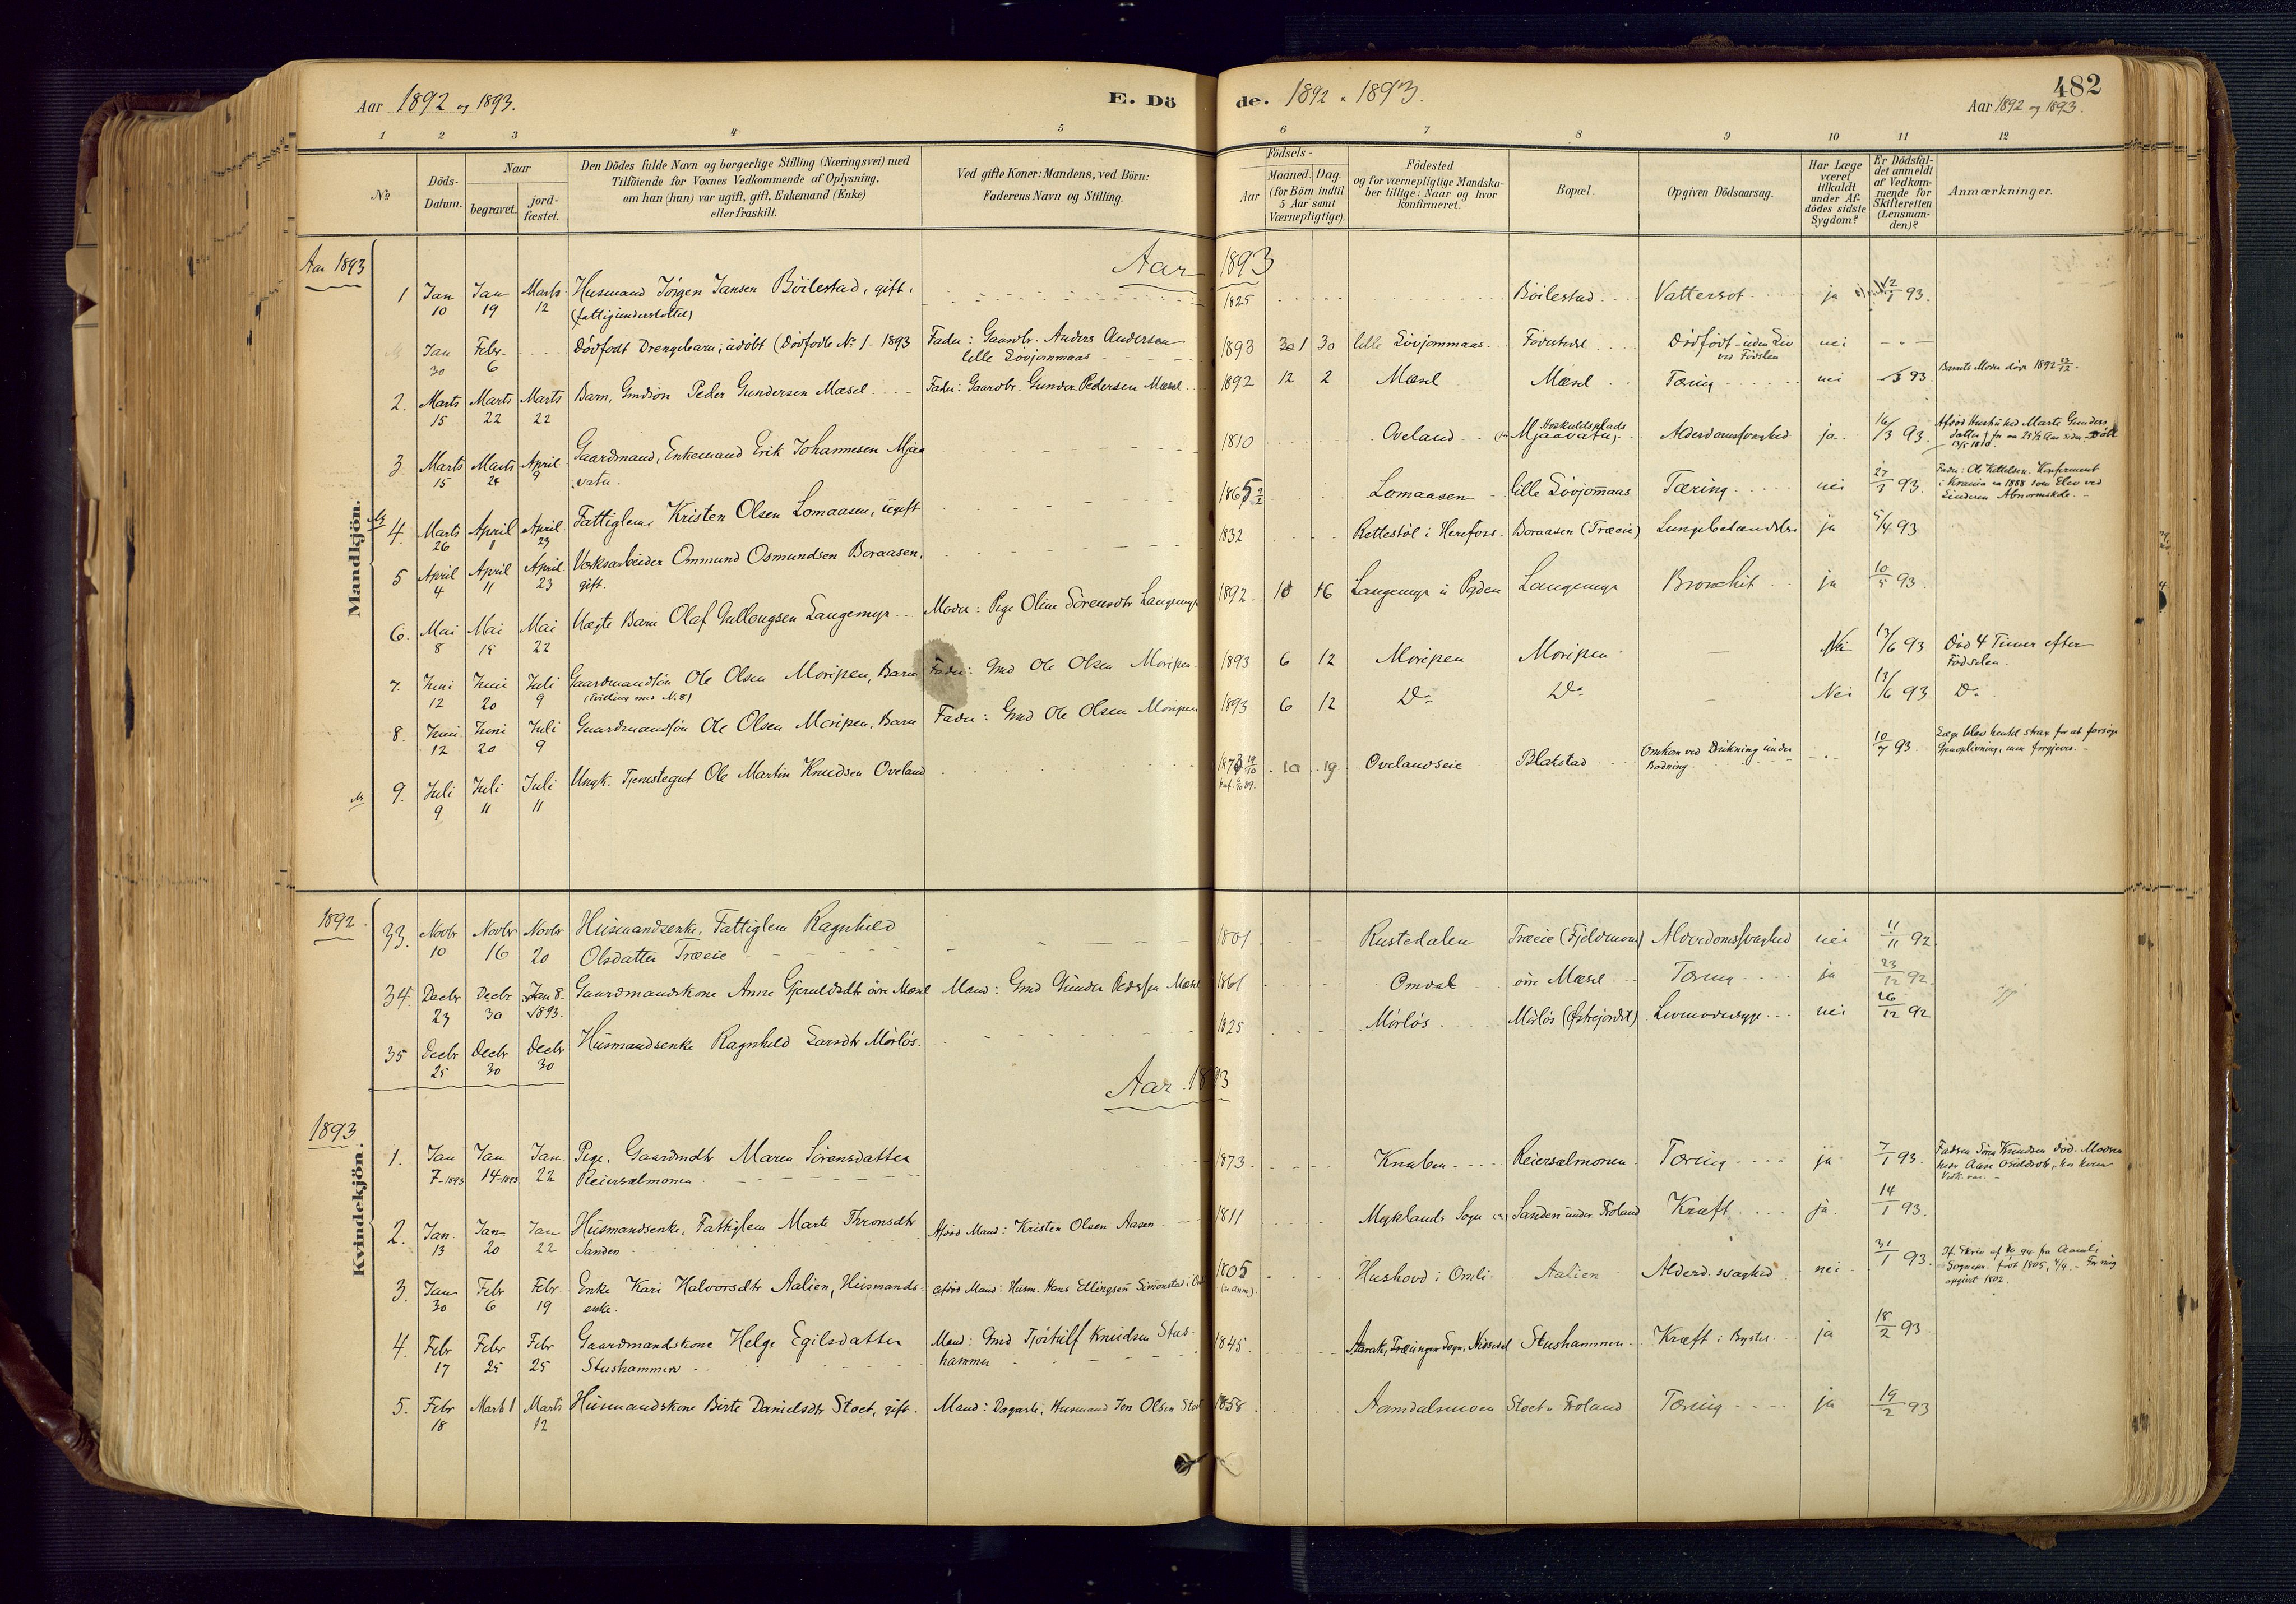 482
Aar 1892 og 1893.
E. Dö
de. 1892 " 1893.
Aar 1892 og 1893.
1 2 3 4 5 6 7 8 9 10 11 12
No
Döds-Datum.
Naar
begravet.
jord-fæstet.
Den Dödes fulde Navn og borgerlige Stilling (Næringsvei) med
Tilföiende for Voxnes Vedkommende af Oplysning,
om han (hun) var ugift, gift, Enkemand (Enke)
eller fraskilt.
Ved gifte Koner: Mandens, ved Börn:
Faderens Navn og Stilling.
Födsels-
Aar
Maaned. Dag.
(for Börn indtil
5 Aar samt
Værnepligtige).
Födested
og for værnepligtige Mandska-
ber tillige: Naar og hvor
konfirmeret.
Bopæl.
Opgiven Dödsaarsag.
Har Læge
været
tilkaldt
under Af-
dödes sidste
Sygdom?
Er Dödsfal-
det anmeldt
af Vedkom-
mende for
Skifteretten
(Lensman-
den)?
Anmærkninger.
Mandkjön.
Aar 1893
Aar 1893
1 Jan 10 Jan 19 Marts 12 Husmand Jörgen Jansen Böilestad, gift. 1825 Böilestad Vattersot ja 93.
(fattigunderstöttet)
Jan 30 Febr. 6 Dödfödt Drengebarn, udöbt (Dödfödte No 1 - 1893 Fader: Gaardbr. Anders Andersen 1893 1 30 lille Lövjommaas Födestedet Dödfödt - uden Liv nei
lille Lövjommaas
ved Födslen
2. Marts 15 Marts 22 Marts 22 Barn, Gmdsön Peder Gundersen Mæsel Fader: Gaardbr. Gunder Pedersen Mæsel 1892 12 2 Mæsel Mæsel Tæring nei 93. Barnets Moder döde 1892 23/12.
3 Marts 15 Marts 24 April 9 Gaardmand, Enkemand Erik Johannesen Mjaa 1810 Oveland Mjaavatn, Alderdomssvaghed ja 16/3 93.
vatn.
4. Marts 26 April 1 April 23 Fattiglem Kristen Olsen Lomaasen, ugift 1865 Lomaasen lille Lövjommaas Tæring nei 27/3 93. Fader: Ole Kittelsen. Konfirmeret
i Krania ca 1888 som Elev ved
5 April 4 April 11 April 23 Værksarbeider Ommund Osmundsen Boraasen, 1832 Rettestöl i Herefoss Boraasen (Træeie) Lungebetændelse ja 5/4 93
gift.
6. Mai 8 Mai 15 Mai 22 Uægte Barn Olaf Gullougsen Langemyr Moder: Pige Oline Sörensdtr Langemyr 1892 10 16 Langemyr Langemyr Bronchit ja 10/5 93.
7. Juni 12 Juni 20 Juli 9 Gaardmandssön Ole Olsen Moripen, Barn Fader: Gmd Ole Olsen Moripen 1893 6 12 Moripen Moripen Nei 13/6 93 Död 4 Timer efter
(Tvilling med No. 8)
Födselen.
8. Juni 12 Juni 20 Juli 9 Gaardmandssön Ole Olsen Moripen, Barn Fader: Gmd Ole Olsen Moripen 1893 6 12 Do Do Nei 13/6 93 Do
9. Juli 9 Juli 11 Juli 11 Ungk. Tjenestegut Ole Martin Knudsen Oveland 10 19 Ovelandseie Blakstad Omkom ved Drukning under 10/7 93. Læge blev hentet strax for at forsöge
Badning. Gjenoplivning, men forgjeves.
Kvindekjön.
1892
33. Novbr 10 Novbr 16 Novbr 20 Husmandsenke, Fattiglem Ragnhild 1801 Rustedalen Træeie (Fjeldmoen) Alderdomssvaghed nei 11/11 92.
Olsdatter Træeie
34. Decbr 23 Decbr 30 Jan 8. 1893. Gaardmandskone Anne Gjeruldsdtr övre Mæsel Mand: Gmd Gunder Pedersen Mæsel 1861 Omdal övre Mæsel Tæring ja 23/12 92.
35 Decbr 25 Decbr 30 Decbr 30 Husmandsenke Ragnhild Larsdtr Mörlös. 1825 Mörlös Mörlös Livmodersyge nei 26/12 92
Aar 1893
1893
1. Jan 7-1893 Jan 14-1893 Jan. 22 Pige, Gaardmdtr Maren Sörensdatter 1873. Knaben Reiersølmonen Tæring ja 7/1 93. Faderen Sören Knudsen död. Moderen
Reiersølmonen
2. Jan. 13 Jan 20 Jan 22 Husmandsenke, Fattiglem Marte Thronsdtr Afdöd Mand: Kristen Olsen Aasen 1811 Myklands Sogn Sanden under Froland Kræft ja. 14/1 93.
Sanden
3. Jan 30 Febr 6 Febr. 19 Enke Kari Halvorsdtr Aalien, Husmands- Afdöd Mand: Husm. Hans Ellingsen Simonstad i 1805 Hushovd i Omli Aalien Alderd. svaghed nei 31/1 93.
enke.
4. Febr 17 Febr 25 Febr 25 Gaardmandskone Helge Egilsdatter Mand: Gmd Tjöstulf Knudsen Stus- 1845 Stushammer Kræft i Brystet ja 18/2 93.
Stushammer hammer
5. Febr 18 Marts 1 Marts 12 Husmandskone Birte Danielsdtr Stoet, gift. Mand: Dagarb., Husmand Jon Olsen Stoet 1858 Aamdalsmoen Stoet u Froland Tæring ja 19/2 93